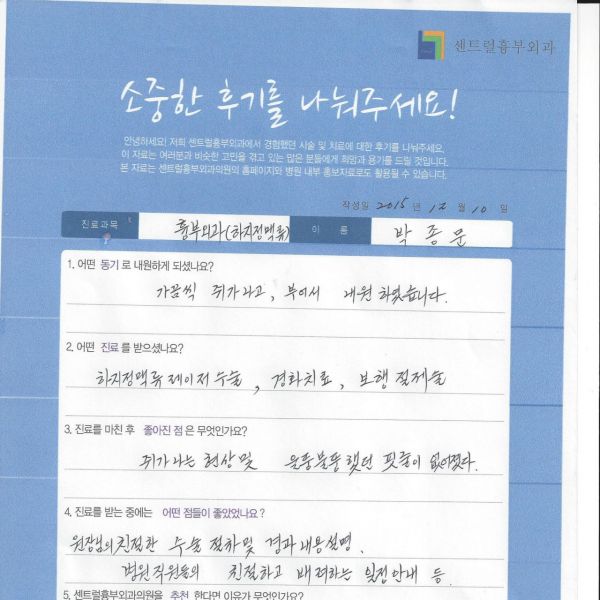 센트럴흉부외과
소중한 후기를 나눠주세요!
안녕하세요! 저희 센트럴흉부외과에서 경험했던 시술 및 치료에 대한 후기를 나눠주세요.
이 자료는 여러분과 비슷한 고민을 겪고 있는 많은 분들에게 희망과 용기를 드릴 것입니다.
본 자료는 센트럴흉부외과의원의 홈페이지와 병원 내부 홍보자료로도 활용될 수 있습니다.
작성일 2015 년 12 월 10 일
진료과목 흉부외과(하지정맥류) 이 름 박종문
1. 어떤 동기로 내원하게 되셨나요?
가끔씩 쥐가나고, 부어서 내원 하였습니다.
2. 어떤 진료를 받으셨나요?
하지정맥류 레이저 수술, 경화치료, 보행 절제술
3. 진료를 마친 후 좋아진 점은 무엇인가요?
쥐가나는 현상및 울퉁불퉁했던 핏줄이 없어졌다.
4. 진료를 받는 중에는 어떤 점들이 좋았었나요?
원장님의 친절한 수술 절차및 경과 내용설명.
병원직원들의 친절하고 배려하는 일정안내 등.
5. 센트럴흉부외과의원을 추천 한다면 이유가 무엇인가요?